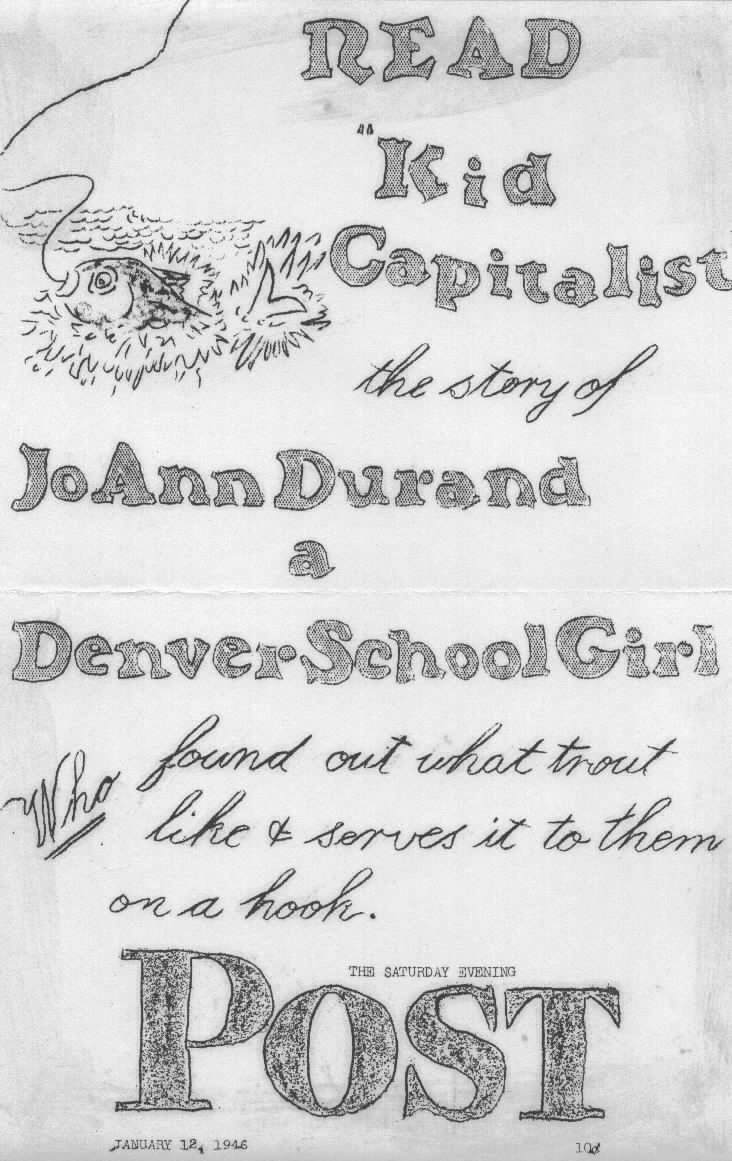 READ
"Kid
Capitalist
the story of
JoAnn Durand
a
Denver School Girl
Who found out what trout
like & serves it to them
on a hook.
THE SATURDAY EVENING
POST
JANUARY 12, 1946
10¢